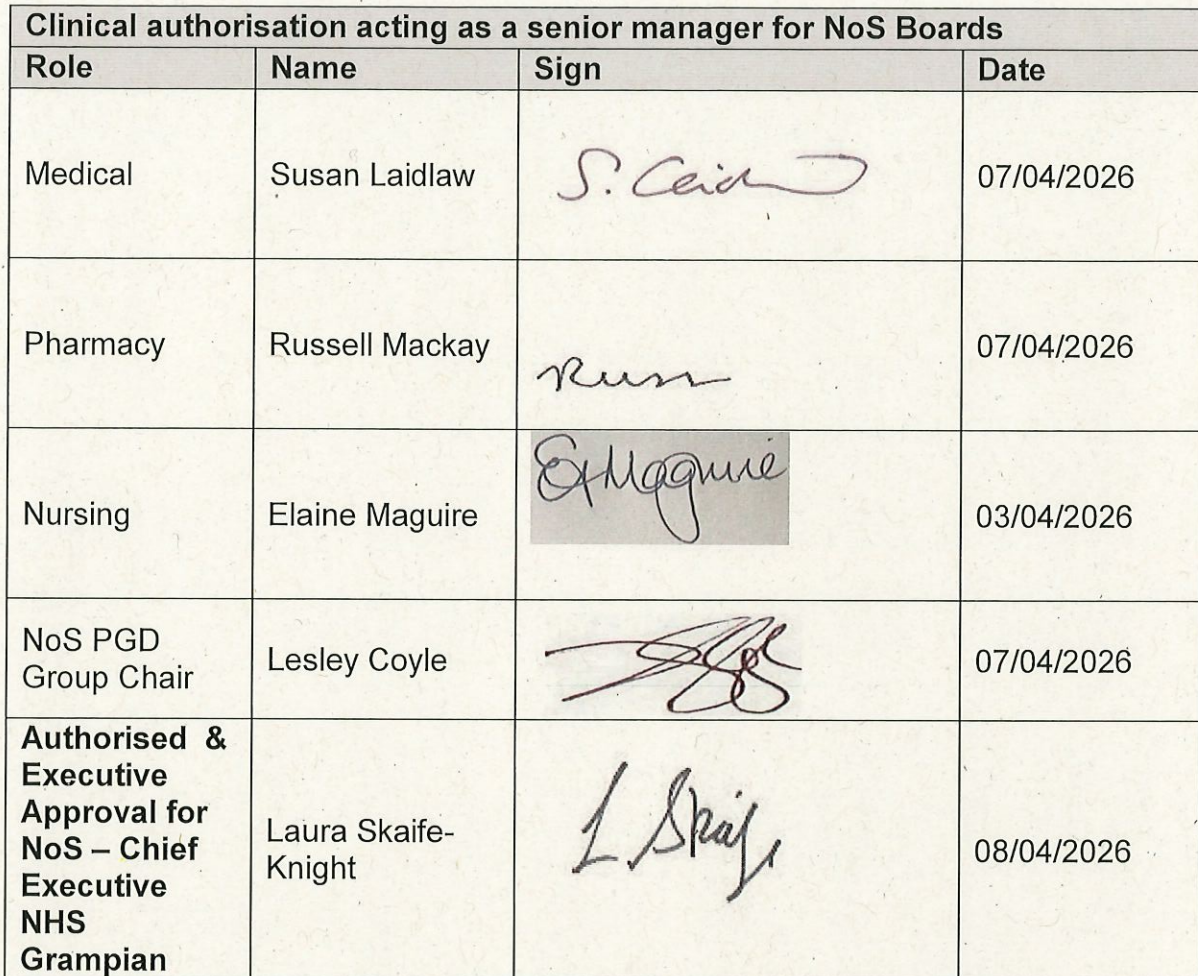 Clinical authorisation acting as a senior manager for NoS Boards
Role Name Sign Date
Medical Susan Laidlaw S. Laid 07/04/2026
Pharmacy Russell Mackay Russ 07/04/2026
Nursing Elaine Maguire EAMaguire 03/04/2026
NoS PGD
Group Chair Lesley Coyle 07/04/2026
Authorised &
Executive
Approval for
NoS – Chief
Executive
NHS
Grampian
Laura Skaife-
Knight
L Skaif
08/04/2026